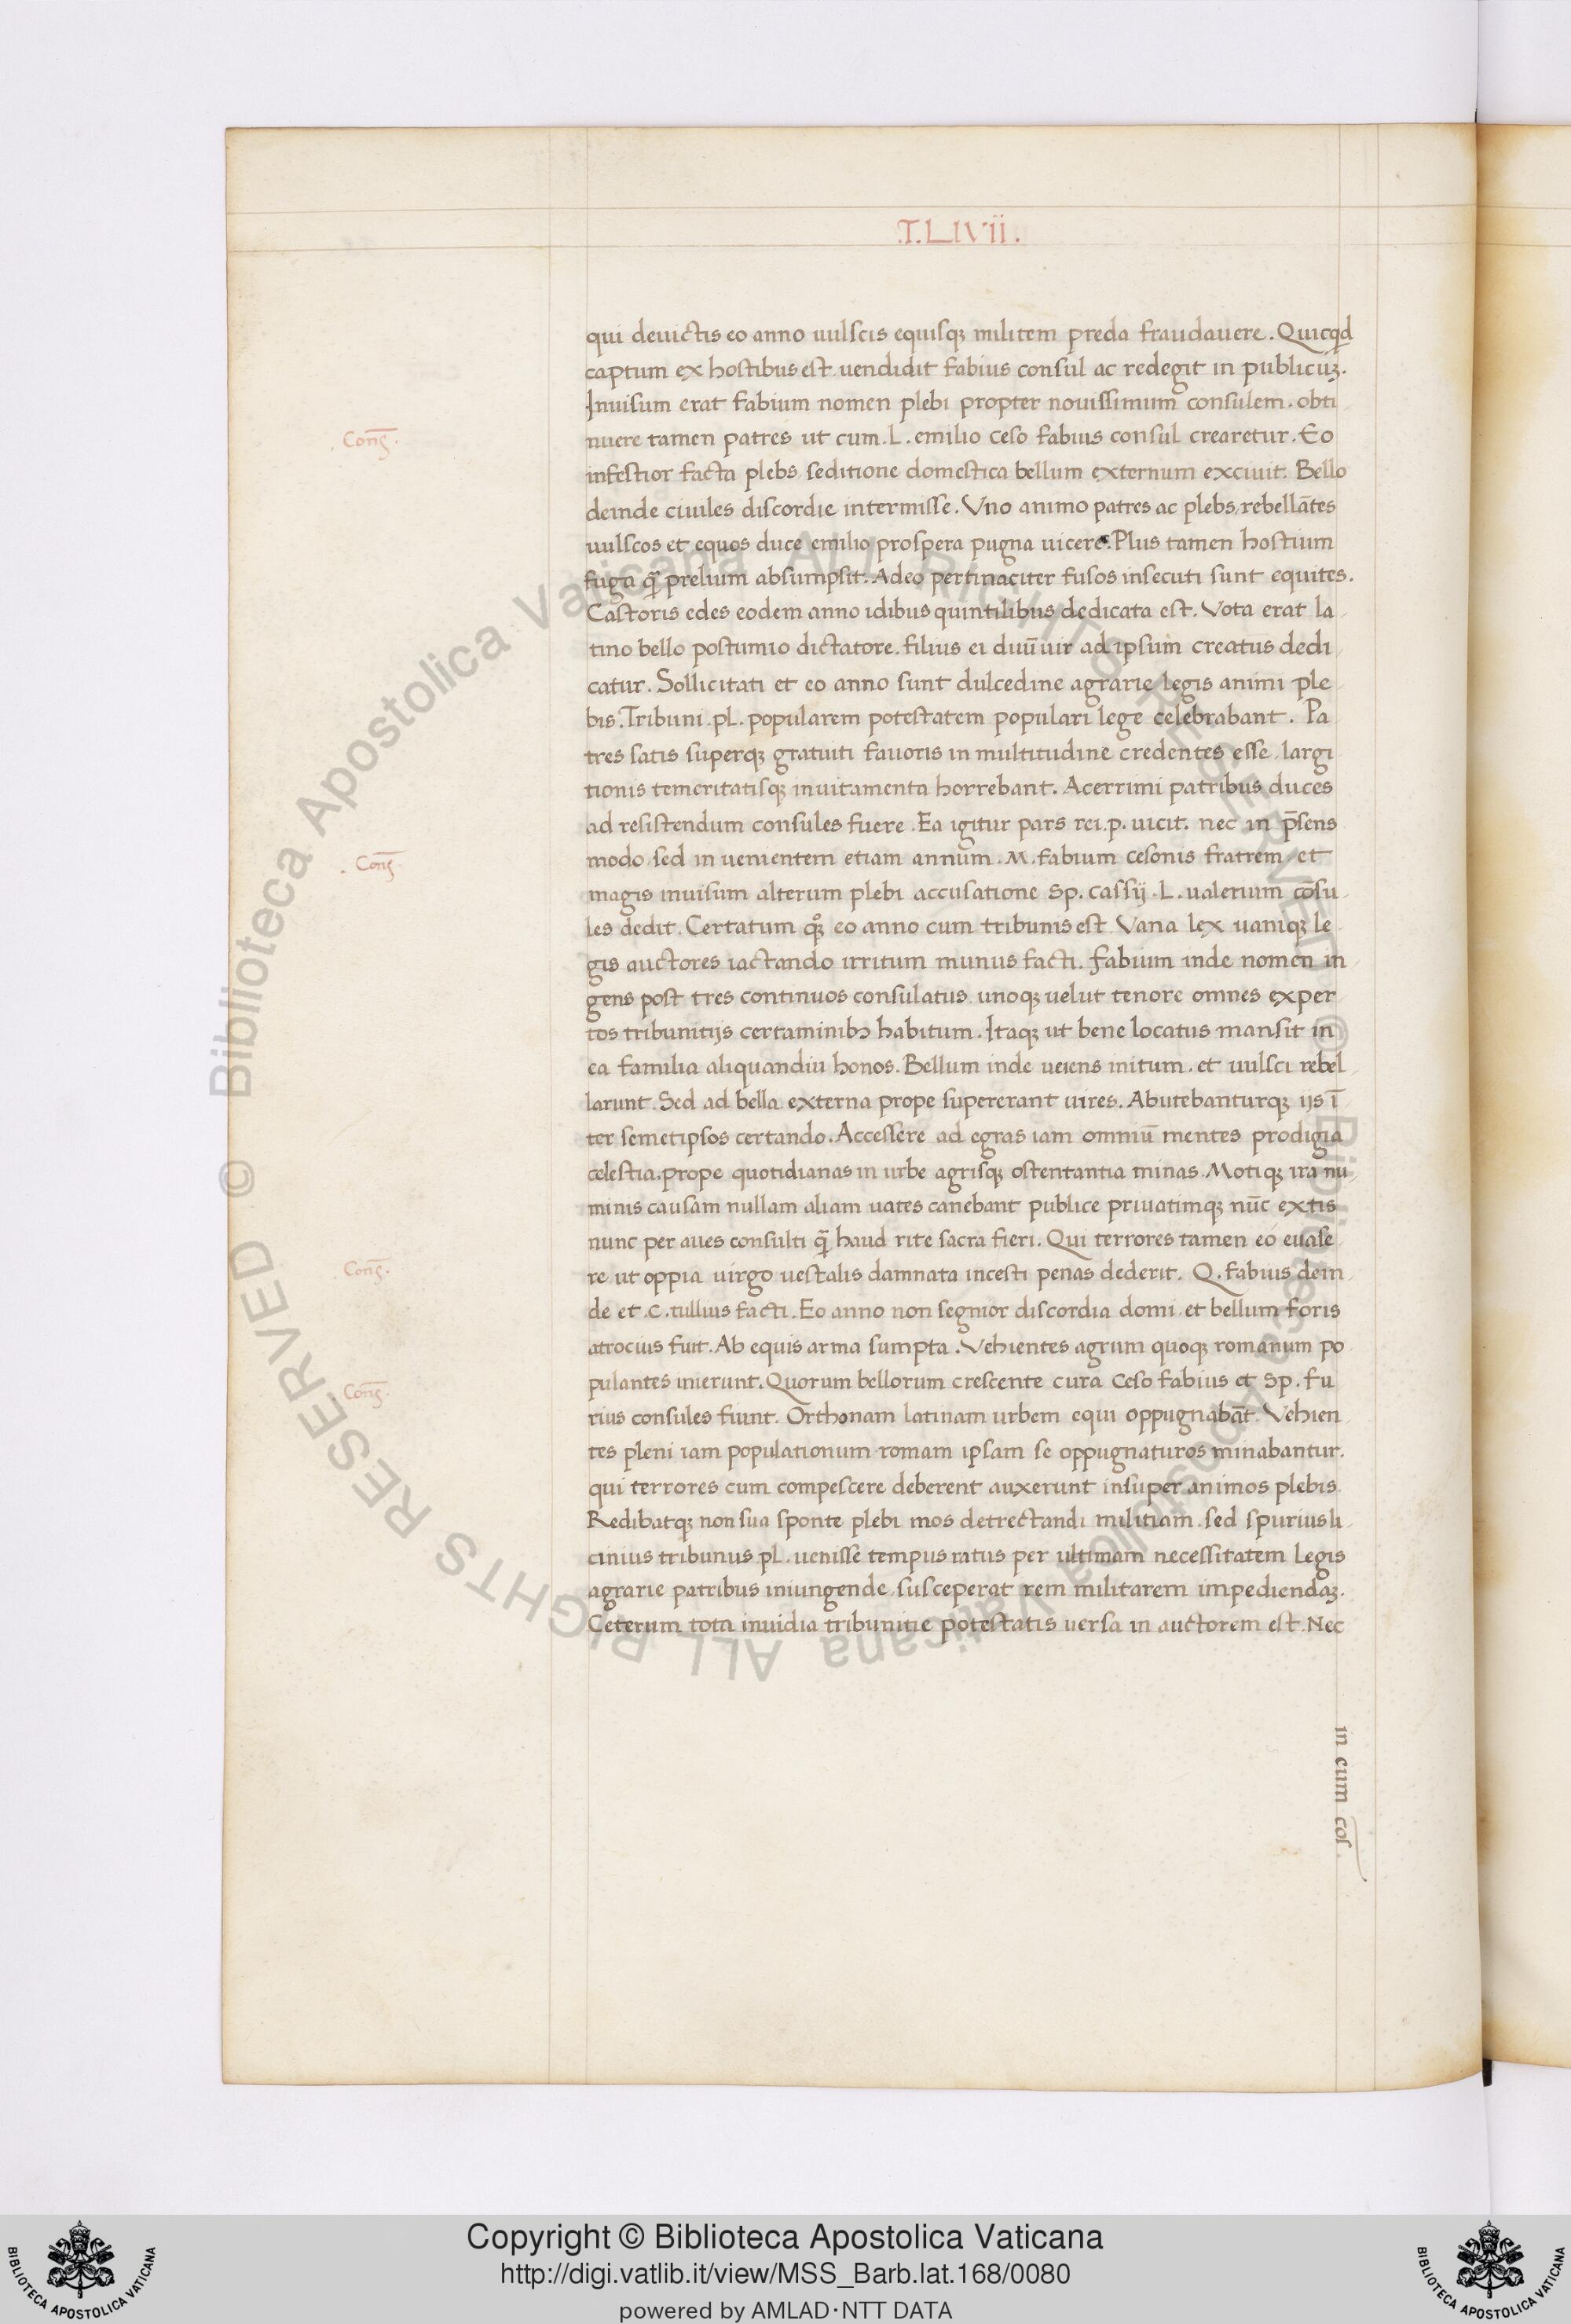 .T.LIVII.
qui deuictis eo anno uulscis equisqꝫ militem preda fraudauere. Quicqd
captum ex hostibus est uendidit fabius consul ac redegit in publicuꝫ.
Inuisum erat fabium nomen plebi propter nouissimum consulem. obti
nuere tamen patres ut cum. L. emilio ceso fabius consul crearetur. Eo
infestior facta plebs seditione domestica bellum externum exciuit. Bello
deinde ciuiles discordie intermisse. Vno animo patres ac plebs, rebellātes
uulscos et equos duce emilio prospera pugna uicere. Plus tamen hostium
fuga qᷓ prelium absumpsit. Adeo pertinaciter fusos insecuti sunt equites.
Castoris edes eodem anno idibus quintilibus dedicata est. Vota erat la
tino bello postumio dictatore. filius ei duūuir ad ipsum creatus dedi
catur. Sollicitati et eo anno sunt dulcedine agrarie legis animi ple
bis. Tribuni. pl. popularem potestatem populari lege celebrabant. Pa
tres satis superqꝫ gratuiti fauoris in multitudine credentes esse, largi
tionis temeritatisqꝫ inuitamenta horrebant. Acerrimi patribus duces
ad resistendum consules fuere. Ea igitur pars rei. p. uicit. nec in p̄sens
modo sed in uenientem etiam annum. M. fabium cesonis fratrem, et
magis inuisum alterum plebi accusatione sp. cassij. L. ualerium cōsu
les dedit. Certatum qꝫ̊ eo anno cum tribunis est. Vana lex uaniqꝫ le
gis auctores iactando irritum munus facti. fabium inde nomen in
gens post tres continuos consulatus unoqꝫ uelut tenore omnes exper
tos tribunitijs certaminibꝫ habitum. Itaqꝫ ut bene locatus mansit in
ea familia aliquandiu honos. Bellum inde ueiens initum. et uulsci rebel
larunt. Sed ad bella externa prope supererant uires. Abutebanturqꝫ ijs ī
ter semetipsos certando. Accessere ad egras iam omniū mentes prodigia
celestia. prope quotidianas in urbe agrisqꝫ ostentantia minas. Motiqꝫ ira nu
minis causam nullam aliam uates canebant publice priuatimqꝫ nūc extis
nunc per aues consulti qᷓ haud rite sacra fieri. Qui terrores tamen eo euase
re ut oppia uirgo uestalis damnata incesti penas dederit. Q. fabius dein
de et .C. tullius facti. Eo anno non segnior discordia domi et bellum foris
atrocius fuit. Ab equis arma sumpta. Vehientes agrum quoqꝫ romanum po
pulantes inierunt. Quorum bellorum crescente cura Ceso fabius et Sp. fu
rius consules fiunt. Orthonam latinam urbem equi oppugnabāt. Vehien
tes pleni iam populationum romam ipsam se oppugnaturos minabantur.
qui terrores cum compescere deberent auxerunt insuper animos plebis.
Redibatqꝫ non sua sponte plebi mos detrectandi militiam. sed spurius li
cinius tribunus pl. uenisse tempus ratus per ultimam necessitatem legis
agrarie patribus iniungende, susceperat rem militarem impediendaꝫ.
Ceterum tota inuidia tribunitie potestatis uersa in auctorem est. Nec
in eum cos.
Conꝭ̄.
. Conꝭ̄
Conꝭ̄.
Conꝭ̄
© Biblioteca Apostolica Vaticana ALL RIGHTS RESERVED
© Biblioteca Apostolica Vaticana ALL RIGHTS RESERVED
Copyright © Biblioteca Apostolica Vaticana
http://digi.vatlib.it/view/MSS_Barb.lat.168/0080
powered by AMLAD·NTT DATA
BIBLIOTECA APOSTOLICA VATICANA
BIBLIOTECA APOSTOLICA VATICANA